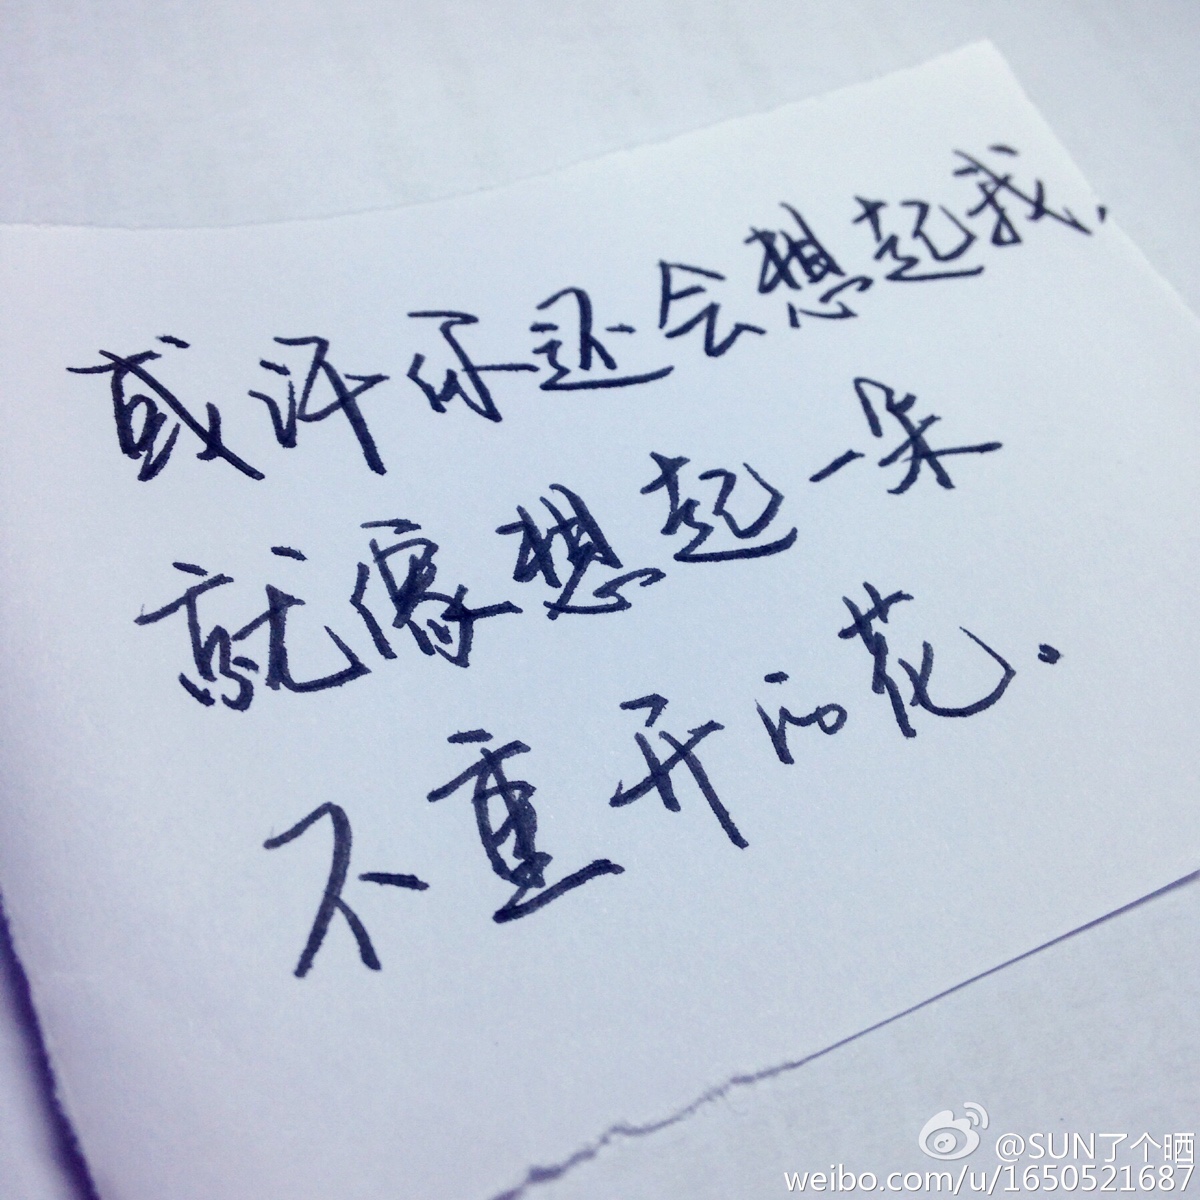 或许你还会想起我,
就像想起一朵
不重开的花.
@SUN了个晒
weibo.com/u/1650521687